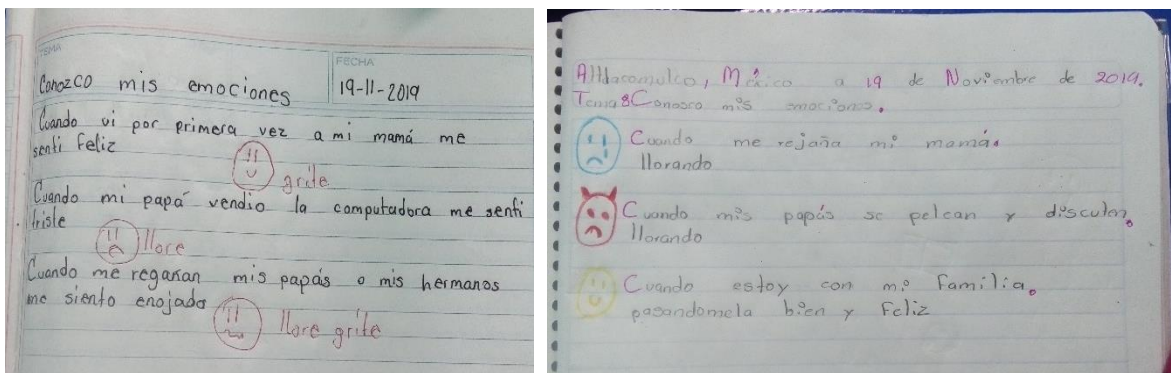 TEMA
FECHA
Conozco mis emociones
19-11-2019
Cuando vi por primera vez a mi mamá me
senti feliz
grite
Cuando mi papá vendio la computadora me senti
triste
llore
Cuando me regañan mis papás o mis hermanos
me siento enojado
llore grite
Atldacomulco, México a 19 de Noviembre de 2019.
Tema: Conosco mis emociones.
Cuando me rejaña mi mamá.
llorando
Cuando mis papás se pelean y discuten.
llorando
Cuando estoy con mi Familia.
pasandomela bien y Feliz